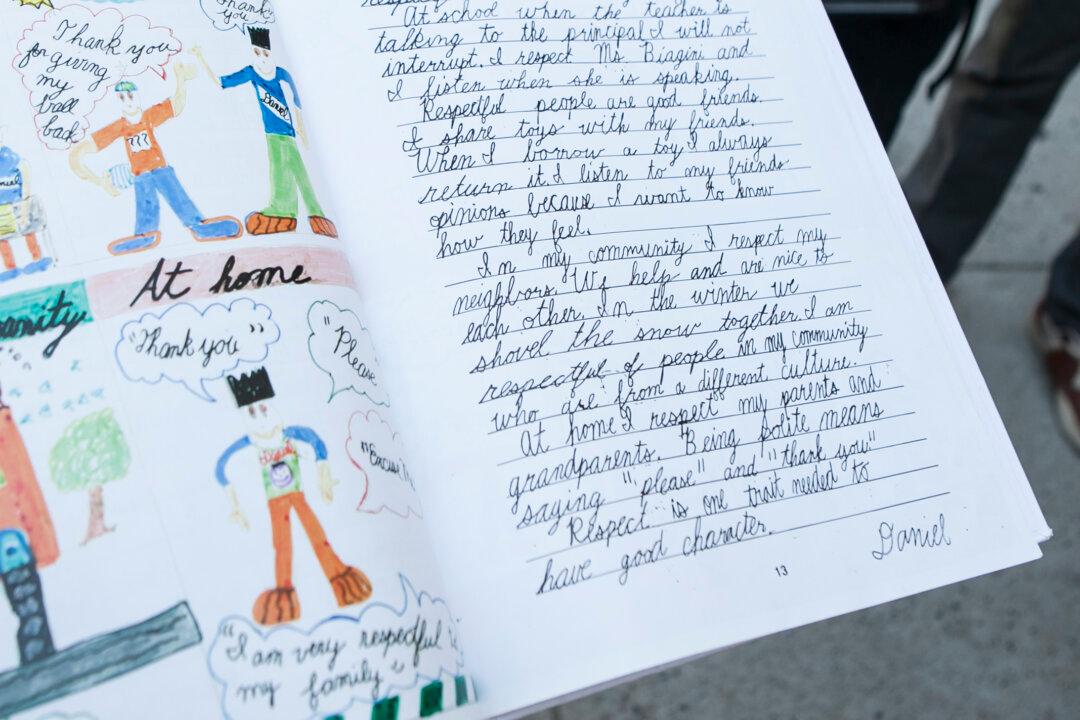 Thank you
for giving
my
ball
back
thank
you
???
Daniel
At home
"Thank you"
"Please
"Excuse
"I am very respectful
my family"
At school when the teacher is
talking to the principal I will not
interrupt. I respect Ms. Biagini and
I listen when she is speaking.
Respectful people are good friends.
I share toys with my friends.
When I borrow a toy I always
return it. I listen to my friends
opinions because I want to know
how they feel.
In my community I respect my
neighbors. We help and are nice to
each other. In the winter we
shovel the snow together. I am
respectful of people in my community
who are from a different culture.
At home I respect my parents and
grandparents. "Being polite means
saying "please" and "thank you"
Respect is one trait needed to
have good character.
Daniel
13